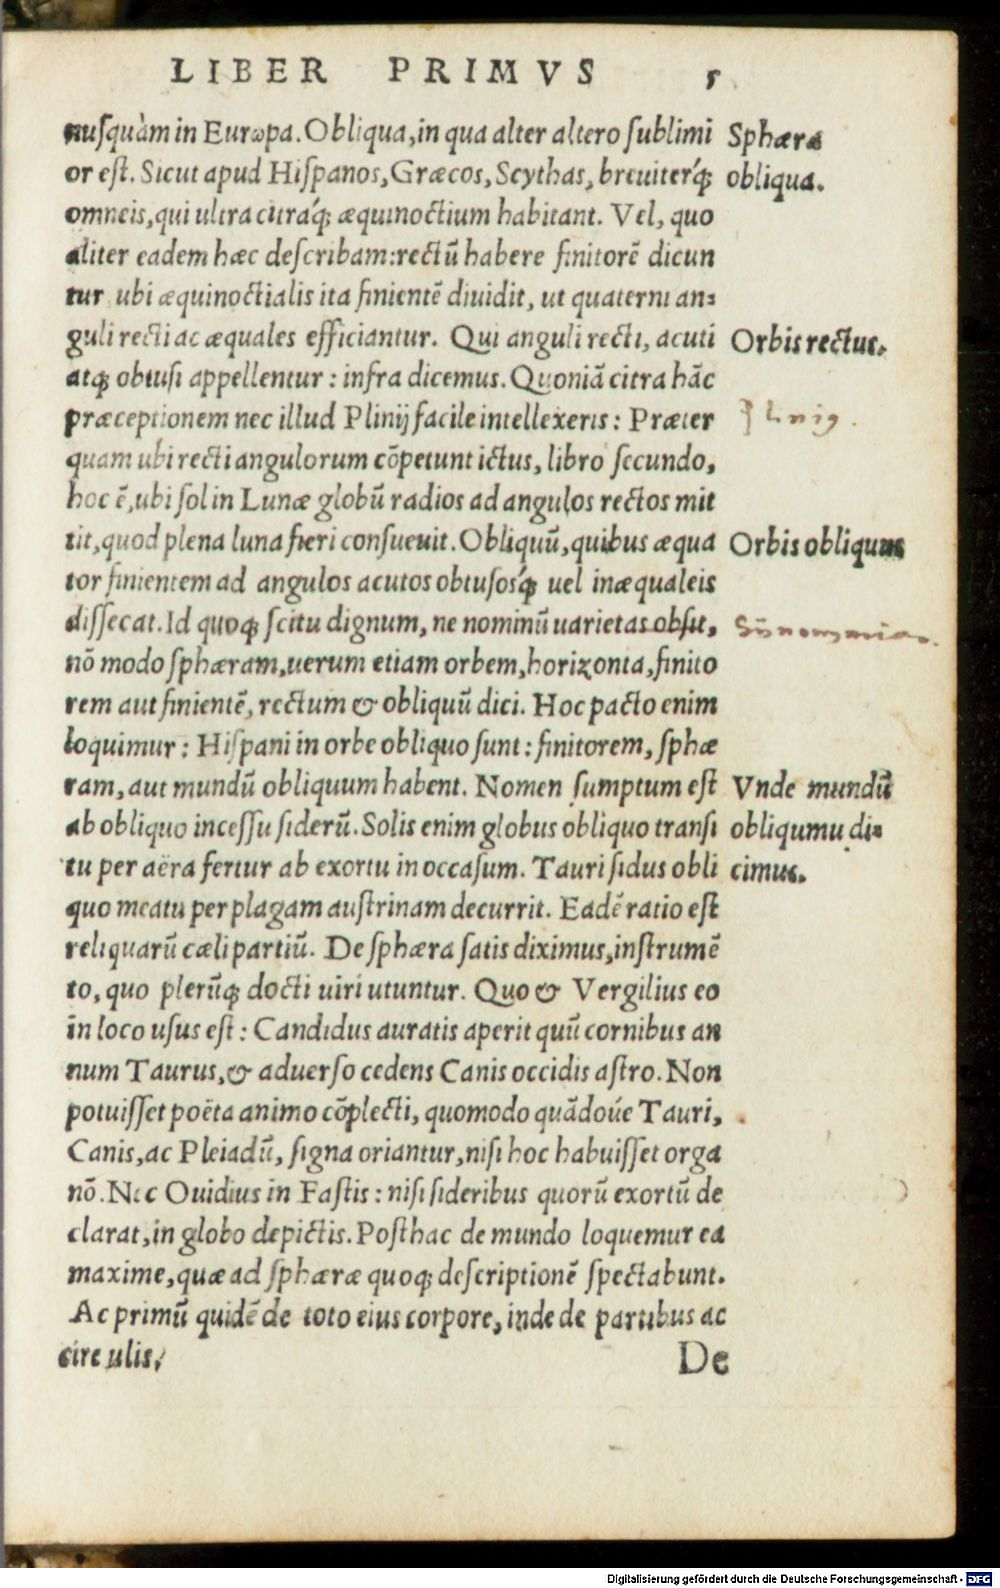 LIBER PRIMVS 5
nusquàm in Eurωpa. Obliqua, in qua alter altero sublimi
or est. Sicut apud Hispanos, Græcos, Scythas, breuiterq́;
omneis, qui ultra citraq́; æquinoctium habitant. Vel, quo
aliter eadem hæc describam: rectū habere finitorē dicun
tur ubi æquinoctialis ita finientē diuidit, ut quaterni an=
guli recti ac æquales efficiantur. Qui anguli recti, acuti
atq; obtusi appellentur: infra dicemus. Quoniā citra hāc
præceptionem nec illud Plinij facile intellexeris: Præter
quam ubi recti angulorum cōpetunt ictus, libro secundo,
hoc ē, ubi sol in Lunæ globū radios ad angulos rectos mit
tit, quod plena luna fieri consueuit. Obliquū, quibus æqua
tor finientem ad angulos acutos obtusosq́; uel inæqualeis
dissecat. Id quoq; scitu dignum, ne nominū uarietas obsit,
nō modo sphæram, uerum etiam orbem, horizonta, finito
rem aut finientē, rectum & obliquū dici. Hoc pacto enim
loquimur: Hispani in orbe obliquo sunt: finitorem, sphæ
ram, aut mundū obliquum habent. Nomen sumptum est
ab obliquo incessu siderū. Solis enim globus obliquo transi
tu per aëra fertur ab exortu in occasum. Tauri sidus obli
quo meatu per plagam austrinam decurrit. Eadē ratio est
reliquarū cæli partiū. De sphæra satis diximus, instrumē
to, quo plerūq; docti uiri utuntur. Quo & Vergilius eo
in loco usus est: Candidus auratis aperit quū cornibus an
num Taurus, & aduerso cedens Canis occidis astro. Non
potuisset poëta animo cōplecti, quomodo quādoúe Tauri,
Canis, ac Pleiadū, signa oriantur, nisi hoc habuisset orga
nō. Nec Ouidius in Fastis: nisi sideribus quorū exortū de
clarat, in globo depictis. Posthac de mundo loquemur ea
maxime, quæ ad sphæræ quoq; descriptionē spectabunt.
Ac primū quidē de toto eius corpore, inde de partibus ac
circulis.
De
Sphæra
obliqua.
Orbis rectus.
Plinij.
Orbis obliquus
Vnde mundū
obliqumu di=
cimus.
Digitalisierung gefördert durch die Deutsche Forschungsgemeinschaft - DFG